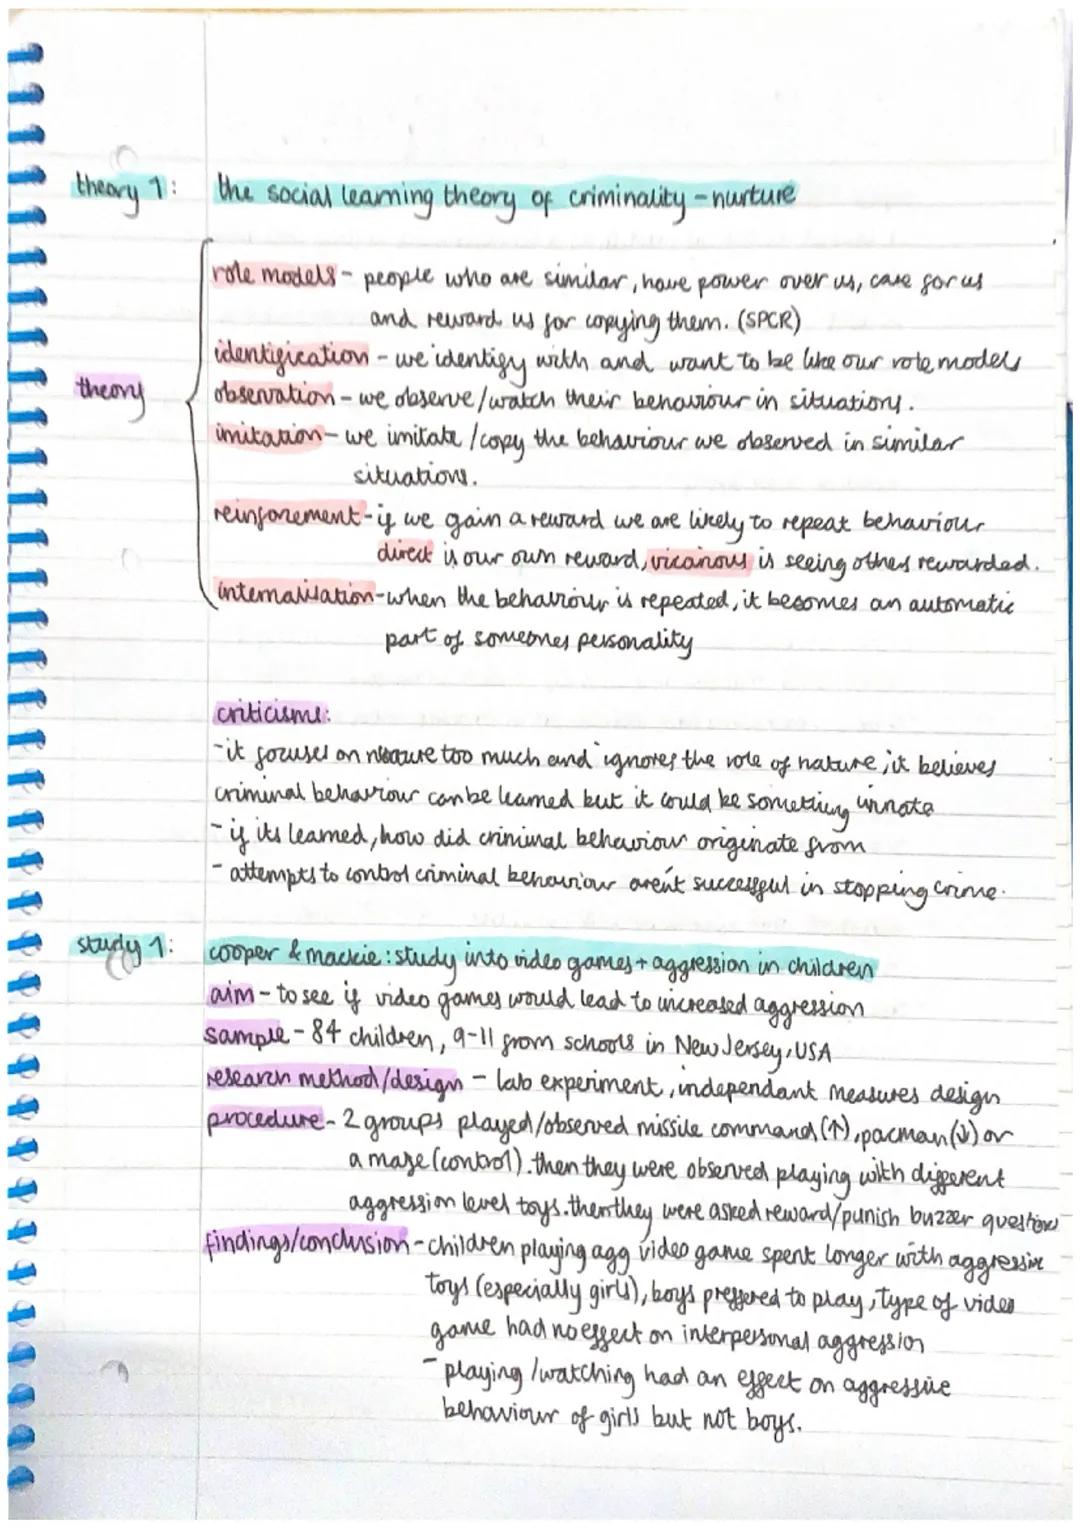 theory 1: the social learning theory of criminality - nurture
role models - people who are similar, have power over us, care for us
and reward us for copying them. (SPCR)
identification - we identify with and want to be like our role models
theory
observation - we observe/watch their behaviour in situations.
imitation - we imitate/copy the behaviour we observed in similar
situations.
reinforement - if we gain a reward we are likely to repeat behaviour
direct is our own reward, vicarious is seeing others rewarded.
internalisation - when the behaviour is repeated, it becomes an automatic
part of someones personality
criticisms:
- it focuses on too much and ignores the role of nature; it believes
criminal behaviour can be learned but it could be something innate
- if its learned, how did criminal behaviour originate from
- attempts to control criminal behaviour aren't successful in stopping crime.
study 1: cooper & mackie: study into video games + aggression in children
aim - to see if video games would lead to increased aggression
sample - 84 children, 9-11 from schools in New Jersey, USA
research method/design - lab experiment, independant measures design
procedure - 2 groups played/observed missile command (↑), pacman (↓) or
a maze (control). then they were observed playing with different
aggression level toys. then they were asked reward/punish buzzer questions
findings/conclusion - children playing agg video game spent longer with aggressive
toys (especially girls), boys preffered to play, type of video
game had no effect on interpersonal aggression
- playing/watching had an effect on aggressive
behaviour of girls but not boys.